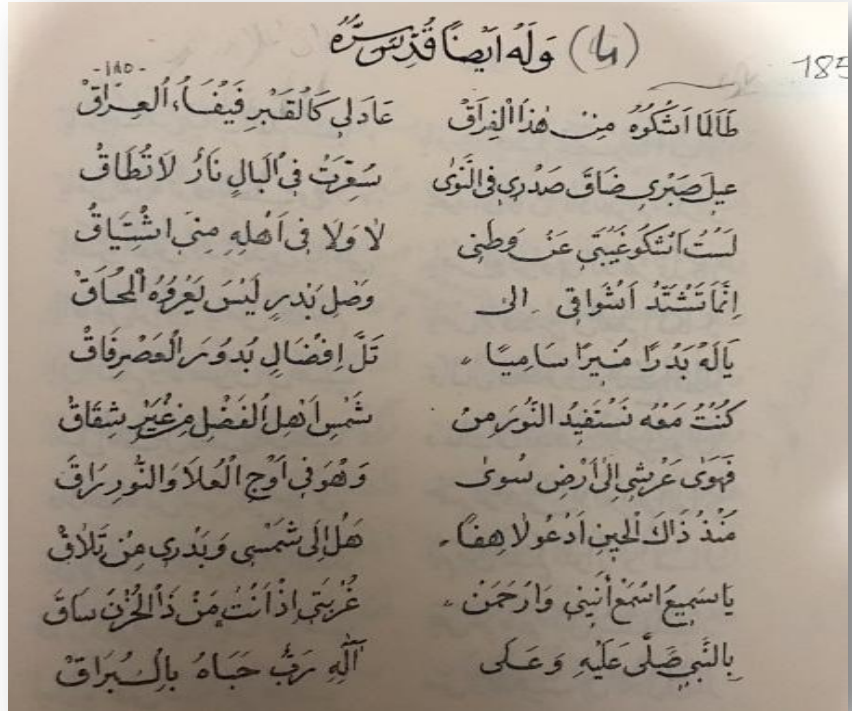 (ها) وَلَهُ اَيْضًا قُدِّسَ سِرُّهُ
-١٨٥-
185
طَالَمَا اَشْكُوهُ مِنْ هٰذَا الْفِرَاقْ عَادَ لِي كَالْقَبْرِ فَيْفَاءُ الْعِرَاقْ
عِيلَ صَبْرِي ضَاقَ صَدْرِي فِي النَّوٰى سُعِّرَتْ فِي الْبَالِ نَارٌ لَا تُطَاقْ
لَسْتُ اَشْكُو غَيْبَتِي عَنْ وَطَنِي لَا وَلَا فِي اَهْلِهِ مِنِّي اشْتِيَاقْ
اِنَّمَا تَشْتَدُّ اَشْوَاقِي اِلٰى وَصْلِ بَدْرٍ لَيْسَ يَعْرُوهُ الْمُحَاقْ
يَالَهُ بَدْرًا مُنِيرًا سَامِيًا تَلَّ اِفْضَالٍ بُدُورَ الْعَصْرِ فَاقْ
كُنْتُ مَعْهُ نَسْتَفِيدُ النُّورَ مِنْ شَمْسِ اَهْلِ الْفَضْلِ مِنْ غَيْرِ شِقَاقْ
فَهَوٰى عَرْشِي اِلٰى أَرْضٍ سُوىٰ وَهُوَ فِي اَوْجِ الْعُلَا وَالنُّورِ رَاقَ
مُنْذُ ذَاكَ الْحِينِ اَدْعُو لَاهِفًا هَلْ اِلٰى شَمْسِي وَبَدْرِي مِنْ تَلَاقْ
يَا سَمِيعُ اسْمَعْ أَنِينِي وَارْحَمَنْ غُرْبَتِي اِذْ اَنْتَ مَنْ ذَا الْحُزْنَ سَاقَ
بِالنَّبِي صَلَّى عَلَيْهِ وَعَلَى آلِهِ رَبٌّ حَبَاهُ بِالْبُرَاقْ